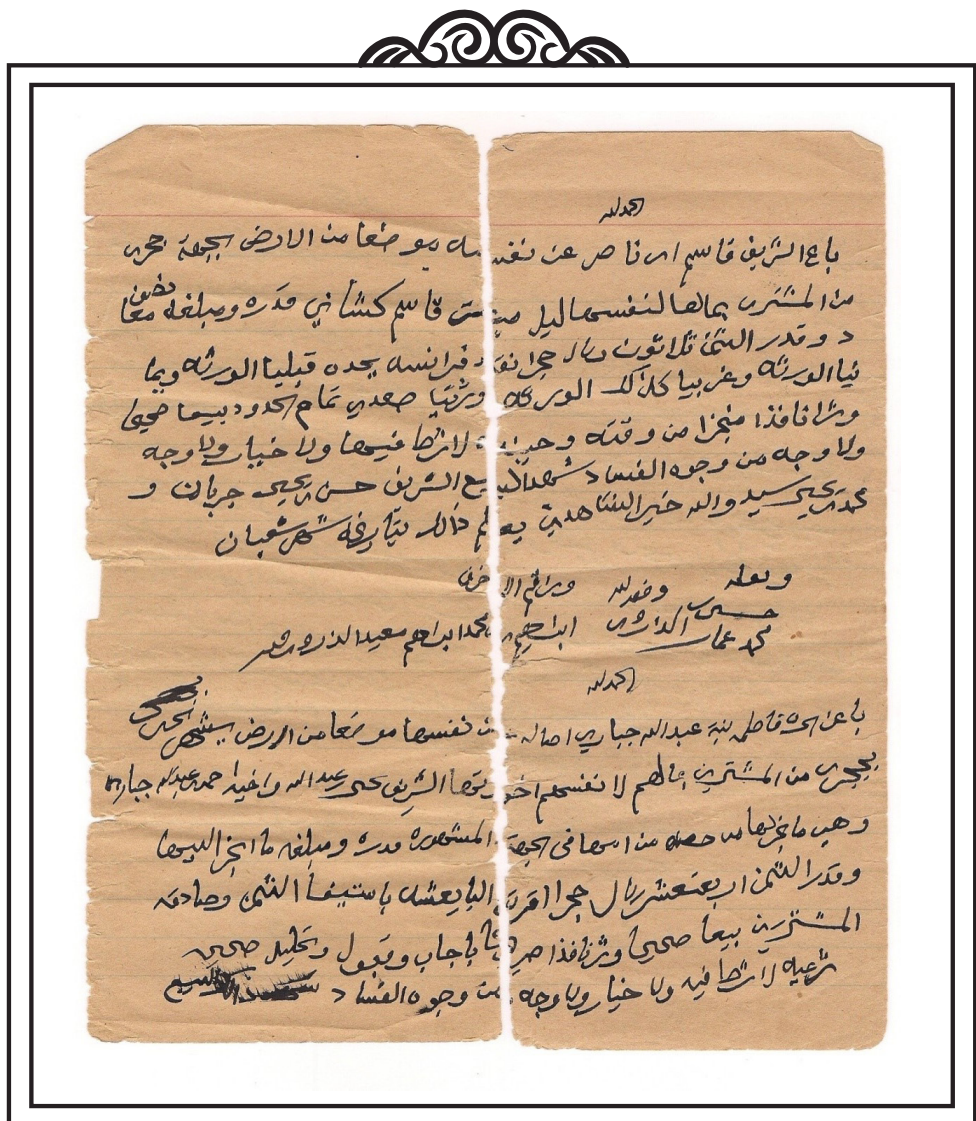 الحمد لله
باع الشريف قاسم ابن ناصر عن نفسه موضعا من الارض بجهة حجرى
من المشترى بمالها لنفسها ليل بنت قاسم كشاني قدره ومبلغه نصف معا
د وقدر الثمن ثلاثون ريال حجرا فرانسه يحده قبليا الورثه ويما
نيا الورثه وغربيا كذالك الورثه وشرقيا صعدي تمام الحدود بيعا صحيحا
وشرا نافذا منجزا من وقته وحينه لا شرطا فيها ولا خيار ولا وجه
ولا وجه من وجوه الفساد شهد البيع الشريف حسن يحيى جربان و
محمد يحيى سيد والله خير الشاهدين يعلم ذالك بتاريخه شهر شعبان
حسين
محمد عمار الذاروى ابراهيم محمد ابراهيم سعيد الذروى
الحمد لله
باعن الحره فاطمه بنة عبدالله جباري اصاله عن نفسها موضعا من الارض
بحجرى من المشترين بمالهم لا نفسهم اخوتها الشريف يحيى عبدالله واخيه حمدى عبدالله جبارى
وهي ما خرلها من حصه من امها في الجهة المشهوره قدره ومبلغه ما انجز اليها
وقدر الثمن اربعتعشر ريال حجرا اقرت البايعه باستيفا الثمن وصادقه
المشترين بيعا صحيحا وشرا نافذا صريحا باجاب وقبول وتحليه صحيح
شرعيه لا شرطا فيه ولا خيار ولا وجه من وجوه الفساد